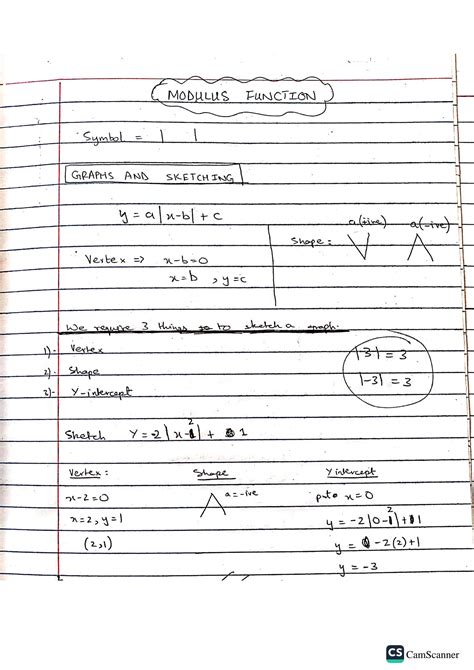 MODULUS FUNCTION
Symbol = | |
GRAPHS AND SKETCHING
y = a|x-b| + c
Shape : a(+ive) a(-ive)
Vertex => x-b=0
x=b , y=c
We require 3 things to to sketch a graph.
1)- Vertex
2)- Shape
3)- Y-intercept
|3| = 3
|-3| = 3
Sketch Y=-2|x-2| + 1
Vertex : Shape Y intercept
x-2=0 a=-ive put x=0
x=2, y=1 y = -2|0-2|+1
(2,1) y = -2(2)+1
y = -3
CS CamScanner